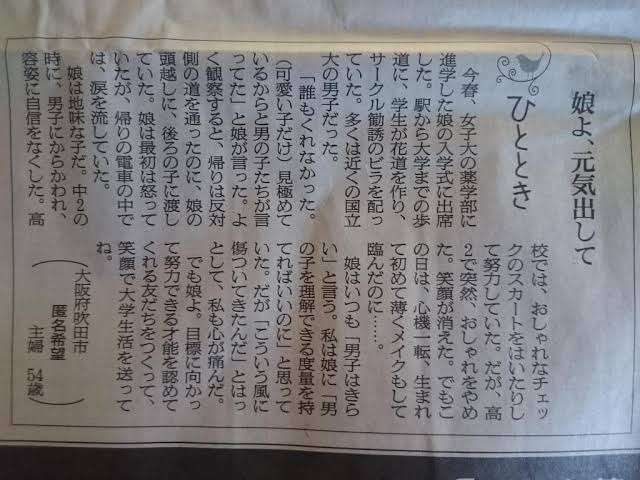 娘よ、元気出して
ひととき
今春、女子大の薬学部に
進学した娘の入学式に出席
した。駅から大学までの歩
道に、学生が花道を作り、
サークル勧誘のビラを配っ
ていた。多くは近くの国立
大の男子だった。
「誰もくれなかった。
(可愛い子だけ)見極めて
いるからと男の子たちが言
ってた」と娘が言った。よ
く観察すると、帰りは反対
側の道を通ったのに、娘の
頭越しに、後ろの子に渡し
ていた。娘は最初は怒って
いたが、帰りの電車の中で
は、涙を流していた。
娘は地味な子だ。中2の
時に、男子にからかわれ、
容姿に自信をなくした。高
校では、おしゃれなチェッ
クのスカートをはいたりし
て努力していた。だが、高
2で突然、おしゃれをやめ
た。笑顔が消えた。でもこ
の日は、心機一転、生まれ
て初めて薄くメイクもして
臨んだのに……。
娘はいつも「男子はきら
い」と言う。私は娘に「男
の子を理解できる度量を持
てればいいのに」と思って
いた。だが「こういう風に
傷ついてきたんだ」とはっ
として、私も心が痛んだ。
でも娘よ。目標に向かっ
て努力できる才能を認めて
くれる友だちをつくって、
笑顔で大学生活を送って
ね。
大阪府吹田市
匿名希望
主婦 54歳